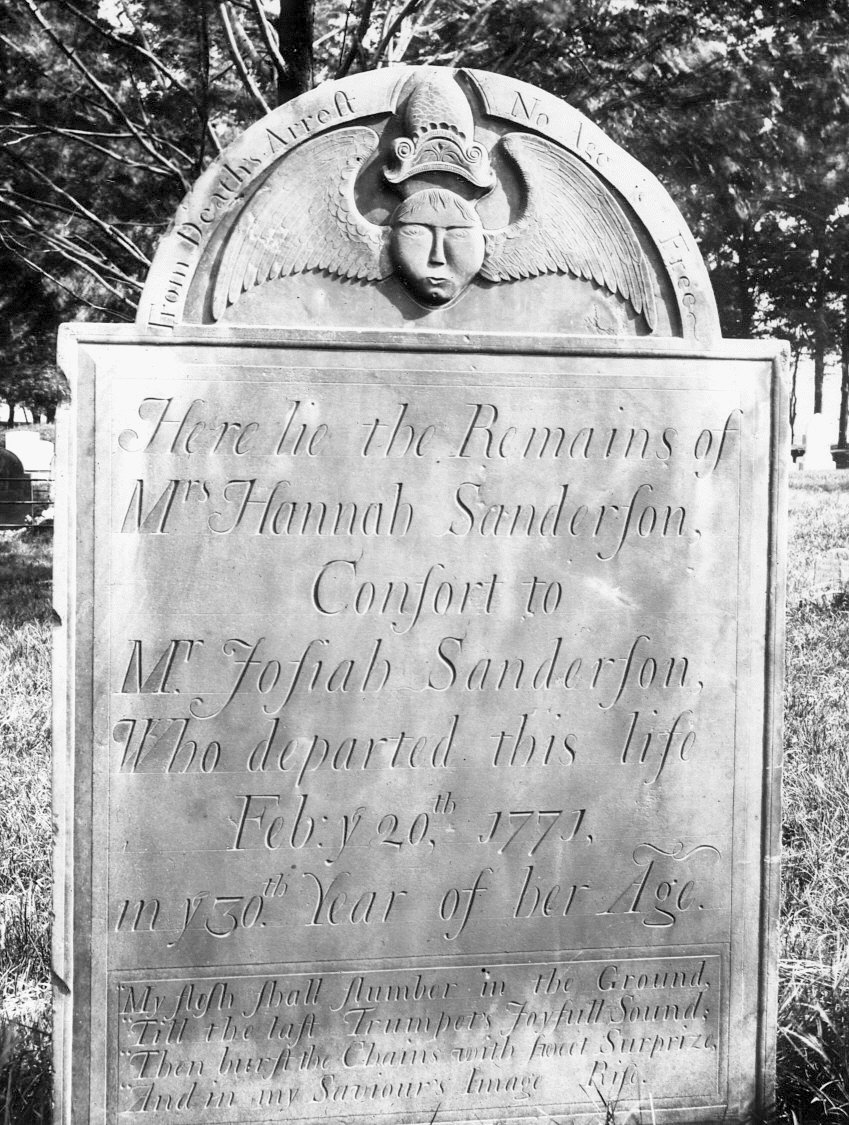 From Deaths Arreſt No Age is Free
Here lie the Remains of
Mrs Hannah Sanderſon,
Conſort to
Mr. Joſiah Sanderſon,
Who departed this life
Feb: ẙ 20th, 1771,
in ẙ 30th. Year of her Age.
"My fleſh ſhall ſlumber in the Ground,
"Till the laſt Trumpets Joyfull Sound;
"Then burſt the Chains with ſweet Surprize,
"And in my Saviour's Image Riſe.